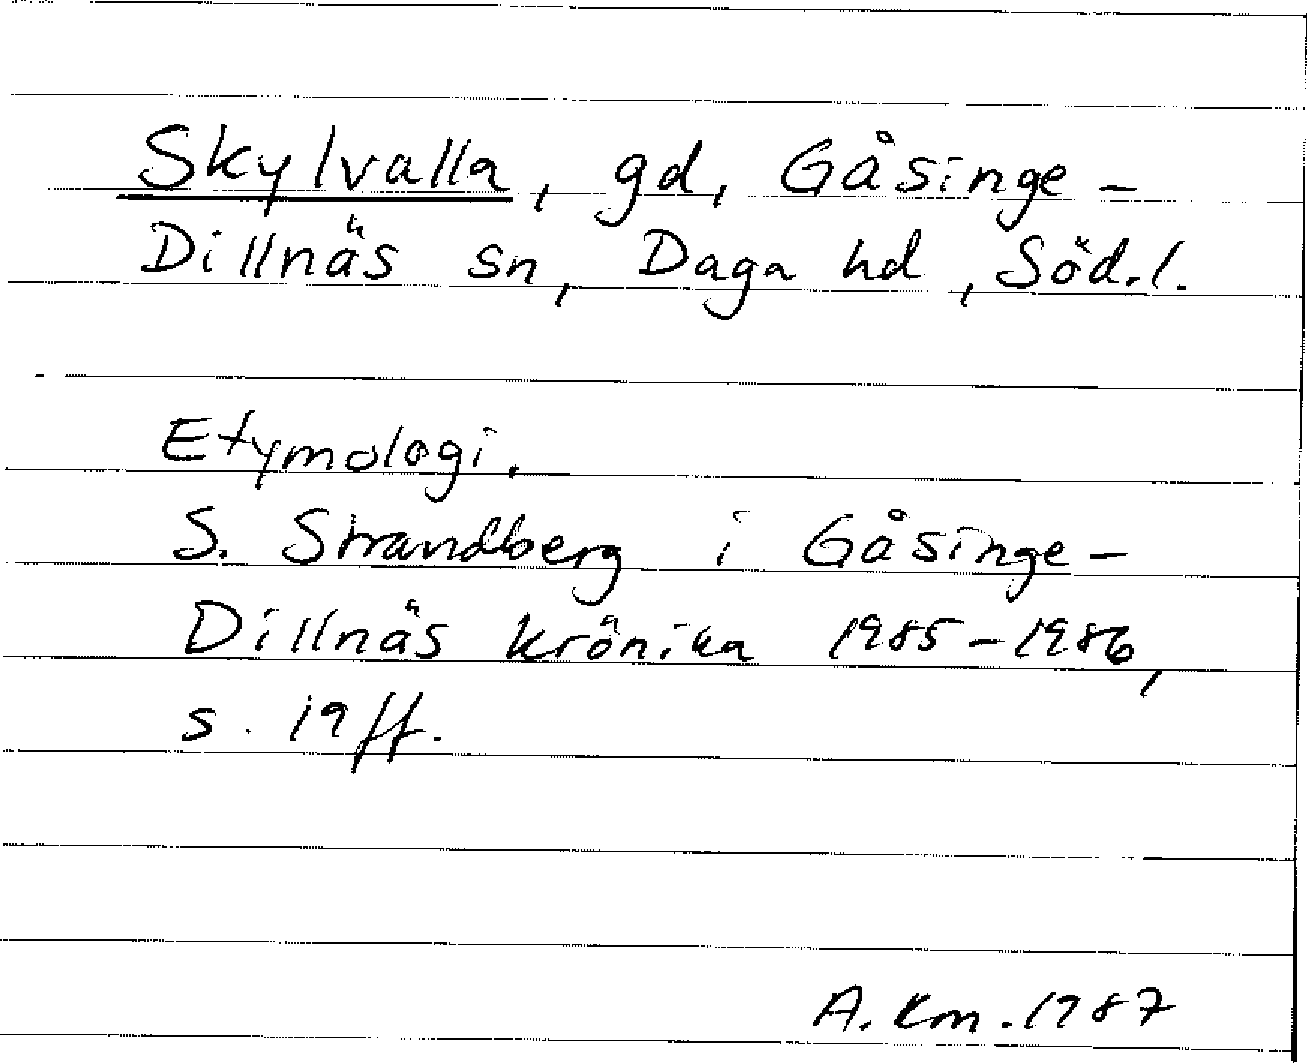 Skylvalla, gd, Gåsinge-
Dillnäs sn, Daga hd, Söd.l.
Etymologi.
S. Strandberg i Gåsinge-
Dillnäs krönika 1985-1986,
s. 19 ff.
A. Km. 1987